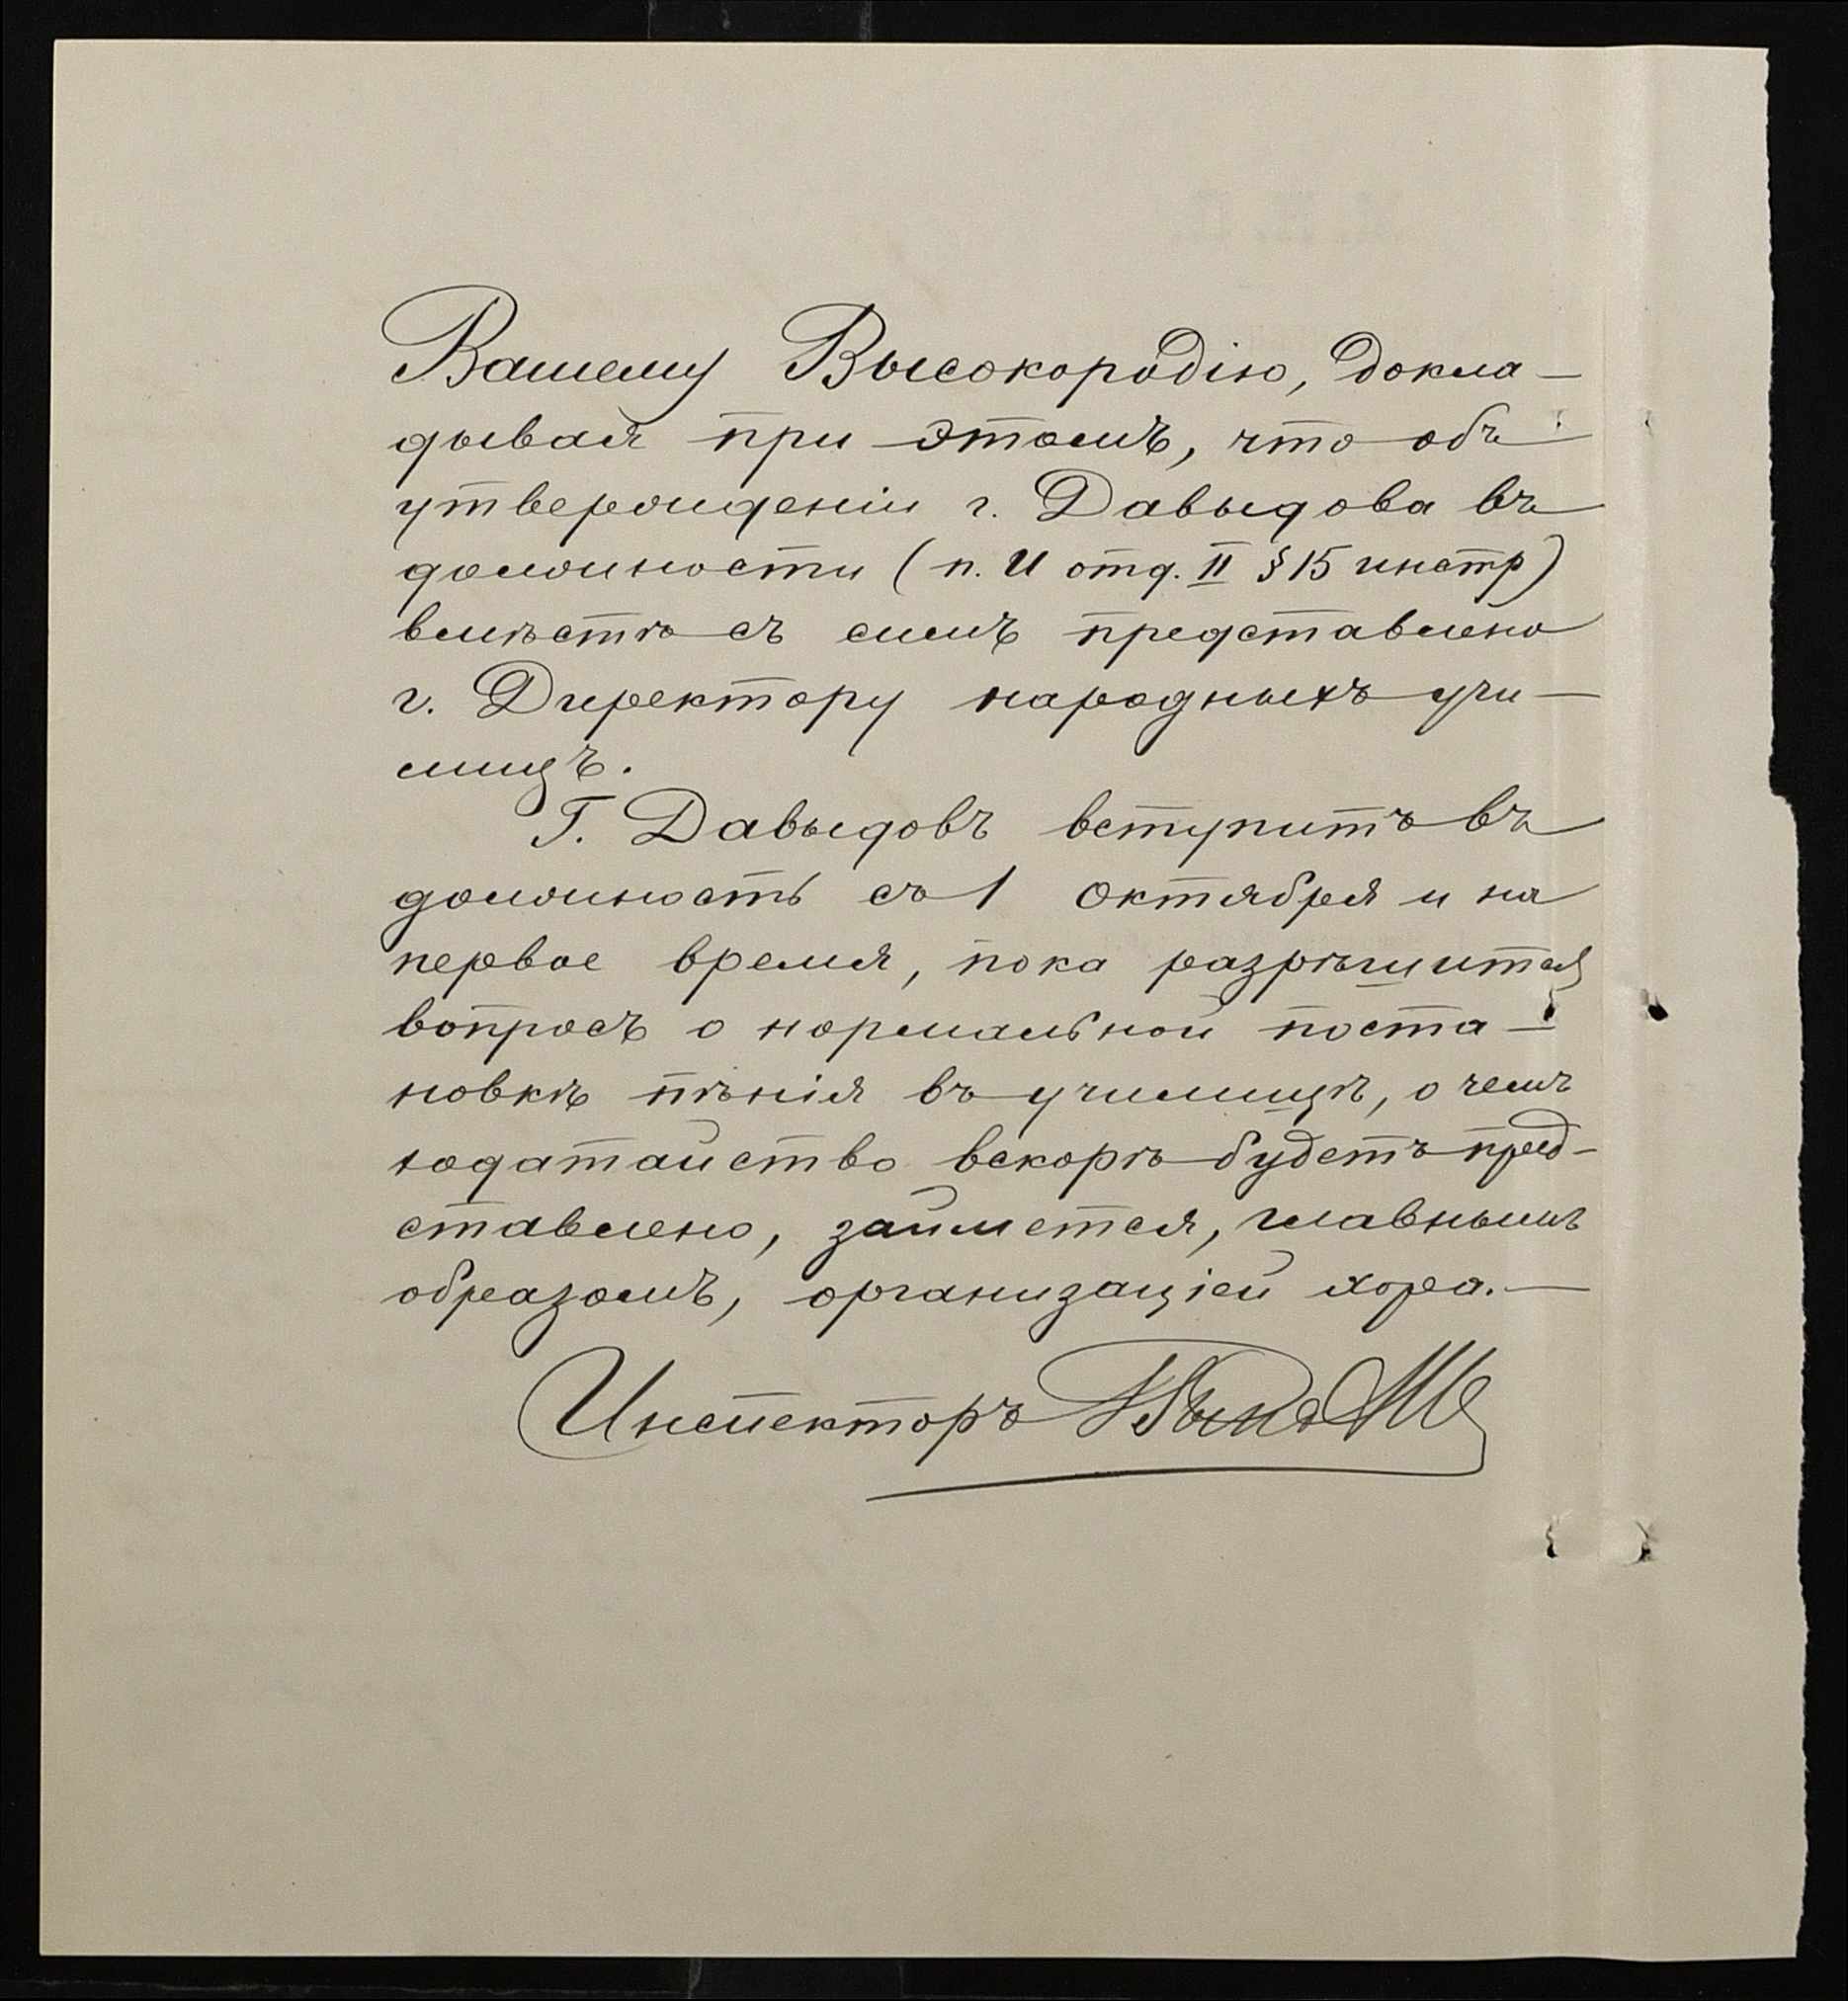 Вашему Высокородію, докла-
дывая при этомъ, что объ
утвержденіи г. Давыдова въ
должности (п. И отд. II § 15 инстр)
вмѣстѣ съ симъ представлено
г. Директору народныхъ учи-
лищъ.
Г. Давыдовъ вступитъ въ
должность съ 1 октября и на
первое время, пока разрѣшится
вопросъ о нормальной поста-
новкѣ пѣнія въ училищѣ, о чемъ
ходатайство вскорѣ будетъ пред-
ставлено, займется, главнымъ
образомъ, организаціей хора.—
Инспекторъ